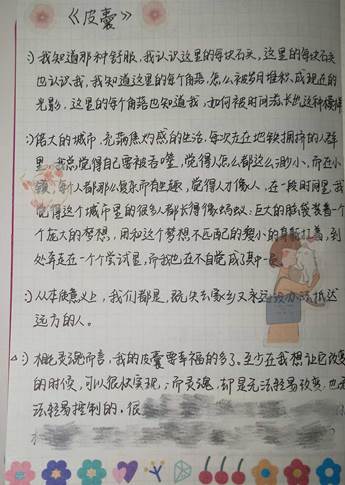 《皮囊》
:)我知道那种舒服，我认识这里的每块石头，这里的每块石头
也认识我，我知道这里的每个角落，怎么被岁月堆积成现在的
光影，这里的每个角落也知道我，如何被时间滋长出这种模样
:)伟大的城市，充满焦灼感的生活，每次走在地铁拥挤的人群
里，我总觉得自己要被吞噬，觉得人怎么都这么渺小，而在小
镇，每个人都那么复杂而有生趣，觉得人才像人，在一段时间里，我
觉得这个城市里的很多人都长得像蚂蚁：巨大的脑袋装着一个
个庞大的梦想，用和这个梦想不匹配的瘦小的身躯扛着，到
处奔走在一个个尝试里，而我也在不自觉成了其中一
:)从本质意义上，我们都是，既失去家乡又永远 抵达
远方的人。
:)相比灵魂而言，我的皮囊要幸福的多了。至少在我想让它改变
的时候，可以很快实现；而灵魂，却是无法轻易改变，也无
法轻易控制的，很